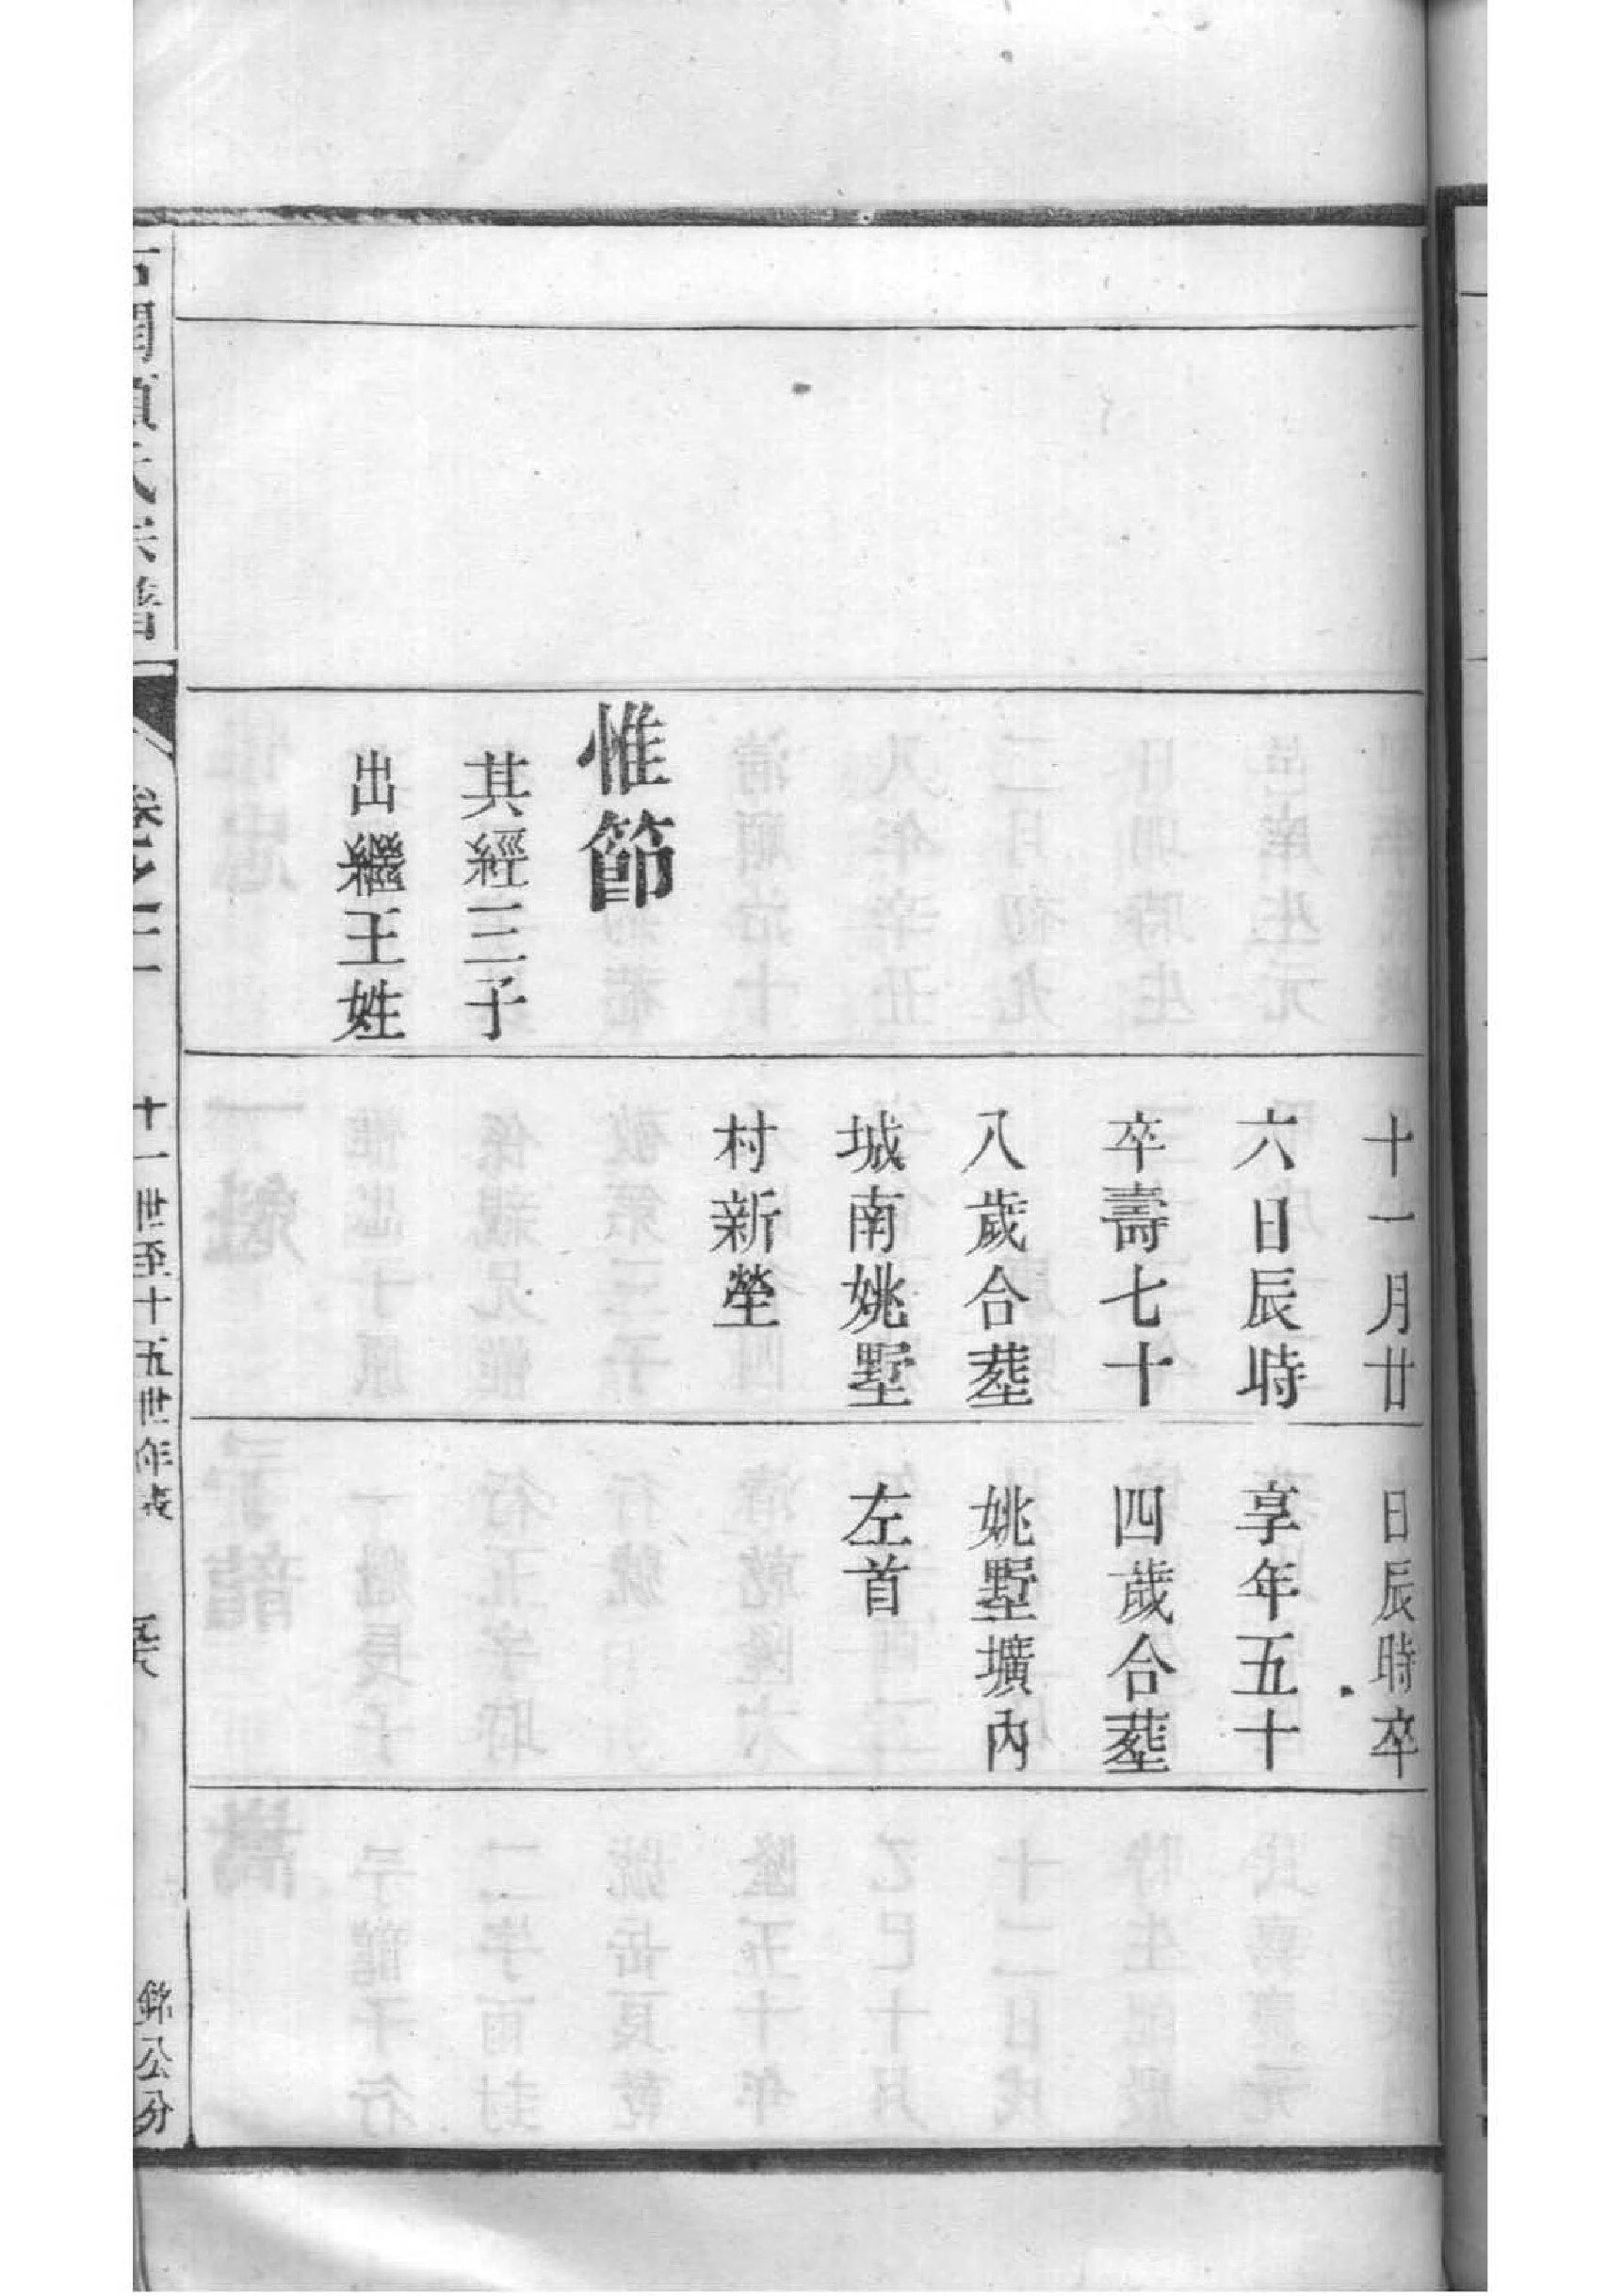 惟節
其經三子
出繼王姓
十一月廿
六日辰時
卒壽七十
八歲合塟
城南姚墅
村新塋
日辰時卒
享年五十
四歲合塟
姚墅壙內
左首
氏宗譜
卷之十二
十一世至十五世年表
銘公分